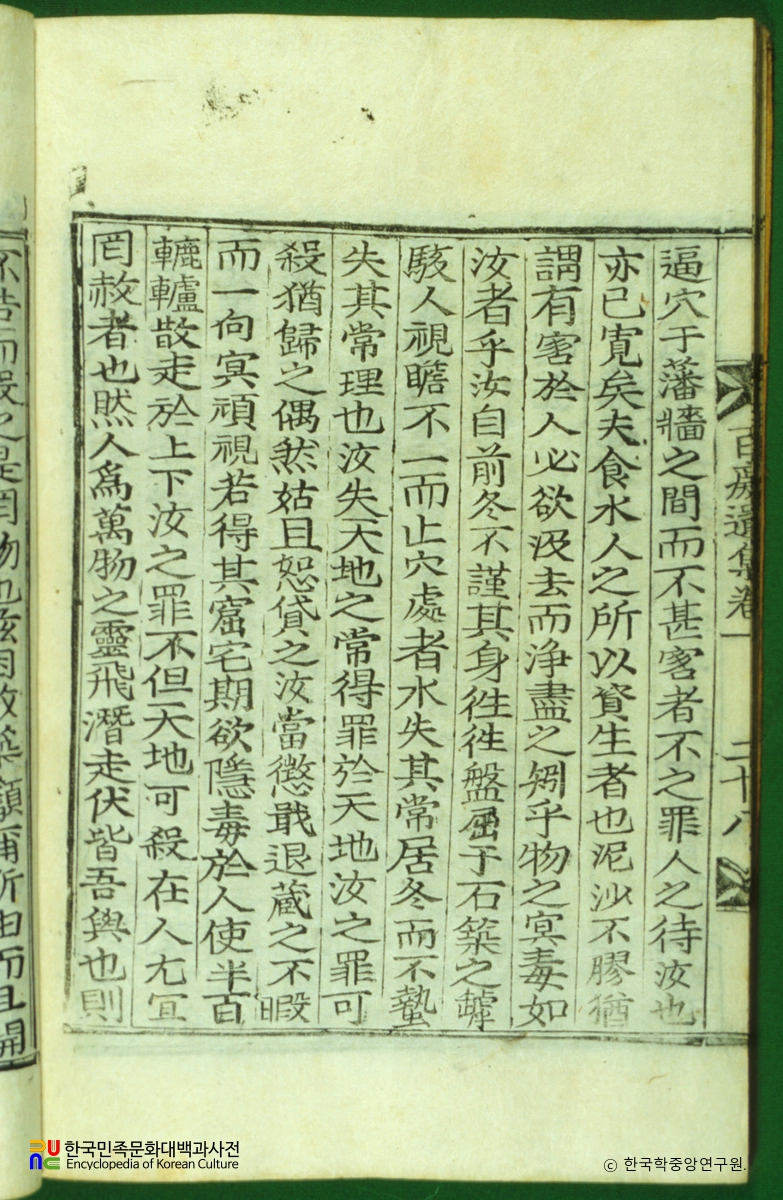 遺集卷一 二十八
逼穴于藩牆之間而不甚害者不之罪人之待汝也
亦已寬矣夫食水人之所以資生者也泥沙不膠猶
謂有害於人必欲汲去而淨盡之矧乎物之冥毒如
汝者乎汝自前冬不謹其身徃徃盤屈于石築之罅
駭人視瞻不一而止穴處者水失其常居冬而不蟄
失其常理也汝失天地之常得罪於天地汝之罪可
殺猶歸之偶然姑且恕貸之汝當懲戢退藏之不暇
而一向冥頑視若得其窟宅期欲隱毒於人使半百
轆轤散走於上下汝之罪不但天地可殺在人尤宜
罔赦者也然人爲萬物之靈飛潛走伏皆吾與也則
不告而殺之是罔物也玆因改築
而且開
한국민족문화대백과사전
Encyclopedia of Korean Culture
ⓒ 한국학중앙연구원.